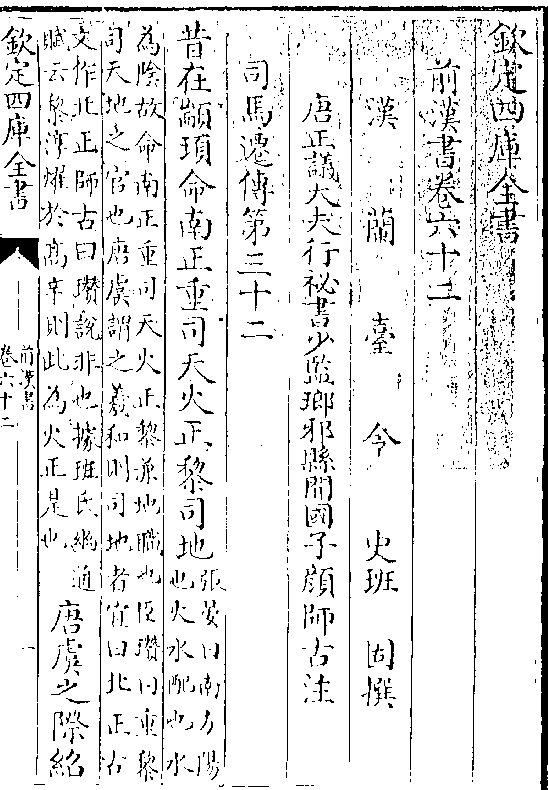 欽定四庫全書
前漢書卷六十二
漢蘭臺令史班固撰
唐正議大夫行祕書少監瑯邪縣開國子顏師古注
司馬遷傳第三十二
昔在顓頊命南正重司天火正黎司地
張晏曰南方陽
也火水配也水
為陰故命南正重司天火正黎兼地職也臣瓚曰重黎
司天地之官也唐虞謂之羲和則司地者宜曰北正古
文作北正師古曰瓚說非也據班氏幽通
賦云黎淳耀於高辛則此為火正是也
唐虞之際紹
欽定四庫全書
前漢書
卷六十二
一